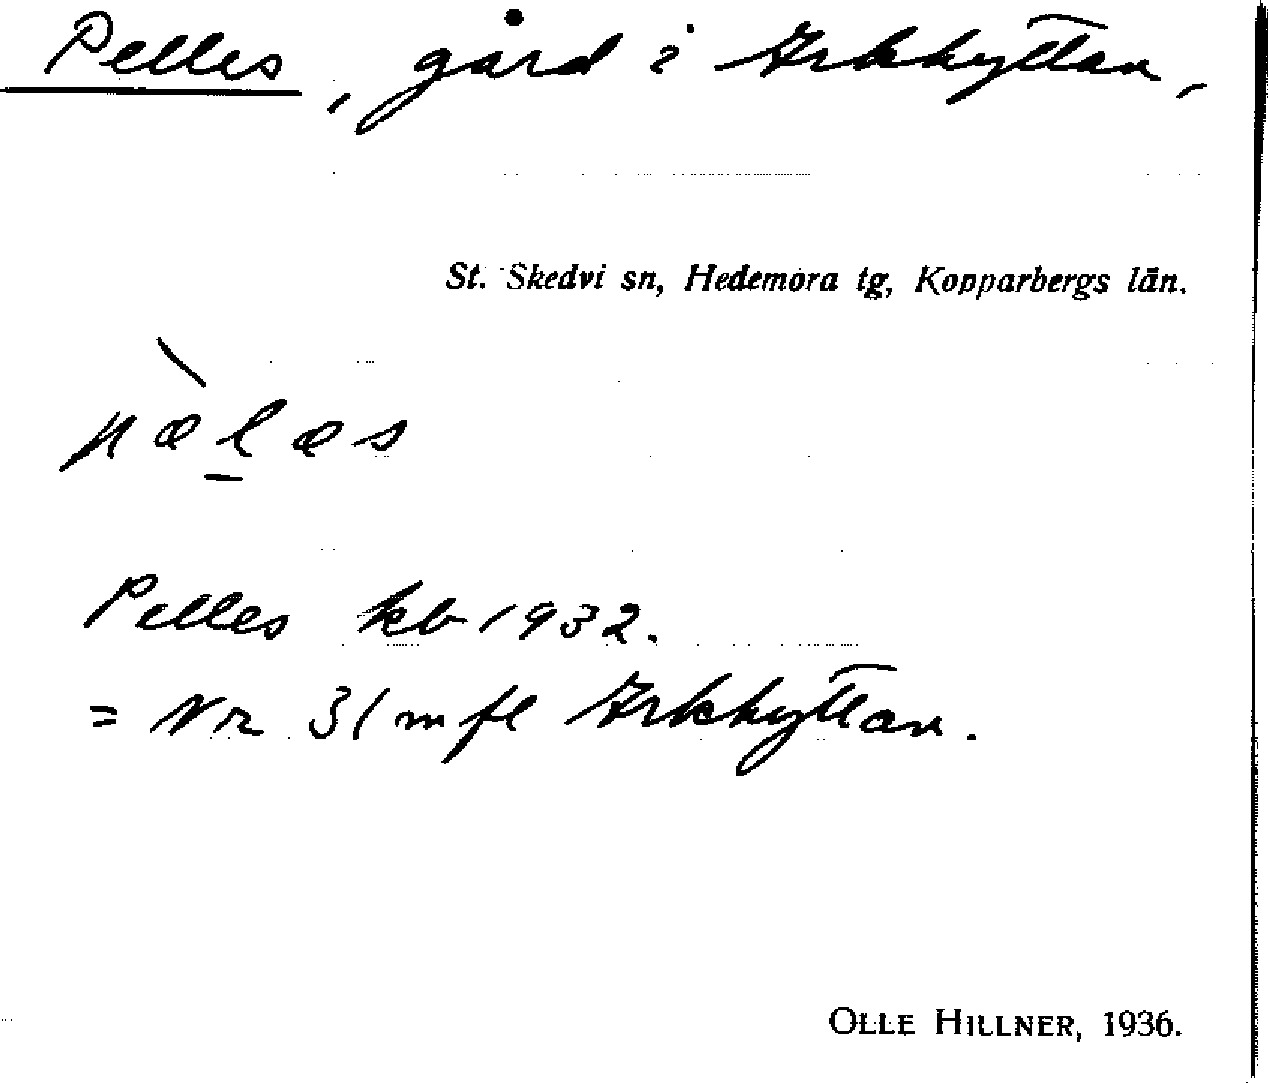 Pelles, gård i Arkhyttan,
St. Skedvi sn, Hedemora tg, Kopparbergs län.
pæ̀l̠æs
Pelles kb 1932.
= Nr 31 m fl Arkhyttan.
OLLE HILLNER, 1936.